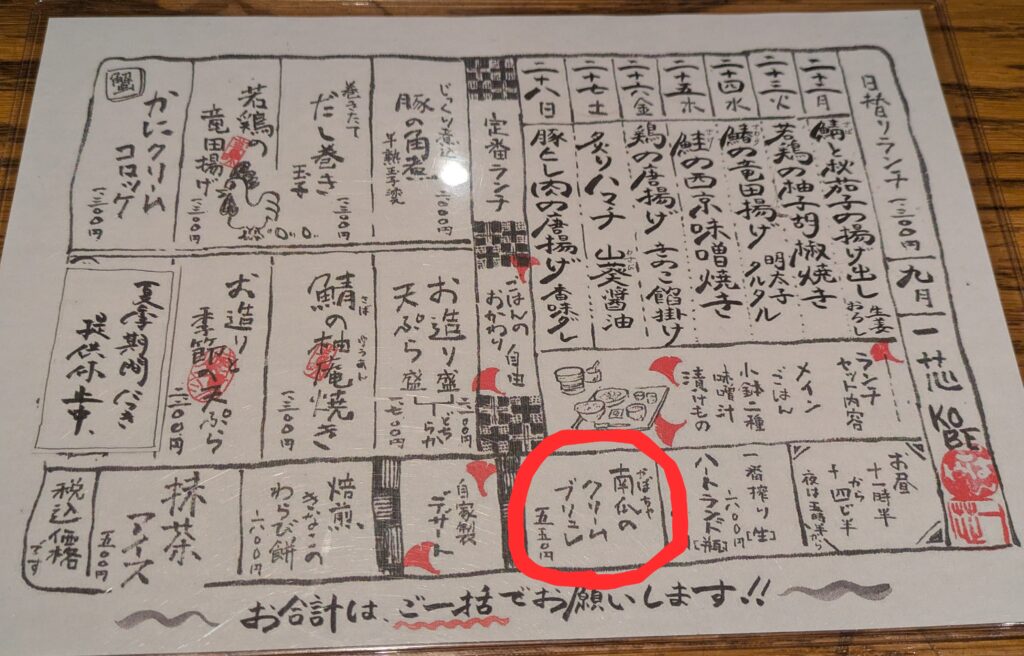 日替りランチ 一二〇〇円
九月
一芯
KOBE
二十二月
鯖と秋茄子の揚げ出し 生姜おろし
二十三火
若鶏の柚子胡椒焼き
二十四水
鰆の竜田揚げ 明太子タルタル
二十五木
鮭の西京味噌焼き
二十六金
鶏の唐揚げ きのこ餡掛け
二十七土
炙りハマチ 山葵醤油
二十八日
豚とし肉の唐揚げ 香味ダレ
定番ランチ
ごはんのおかわり自由
じっくり煮込
豚の角煮
半熟玉子添え
巻きたて
だし巻き
玉子
若鶏の
竜田揚げ
蟹
かにクリーム
コロッケ
一三〇〇円
お造り盛
天ぷら盛
どちらか
鯖の柚庵焼き
さば
ゆうあん
一三〇〇円
お造りと
季節の天ぷら
夏季期間につき
提供休止中、
ランチ
セット内容
メイン
ごはん
小鉢二種
味噌汁
漬けもの
お昼
十一時半
から
十四じ半
夜は五時半から
一番搾り[生]
六〇〇円
ハートランド[瓶]
かぼちゃ
南瓜の
クリーム
ブリュレ
五五〇円
自家製
デザート
焙煎
きなこの
わらび餅
六〇〇円
抹茶
アイス
五〇〇円
税込価格
です
お合計は、ご一括でお願いします!!